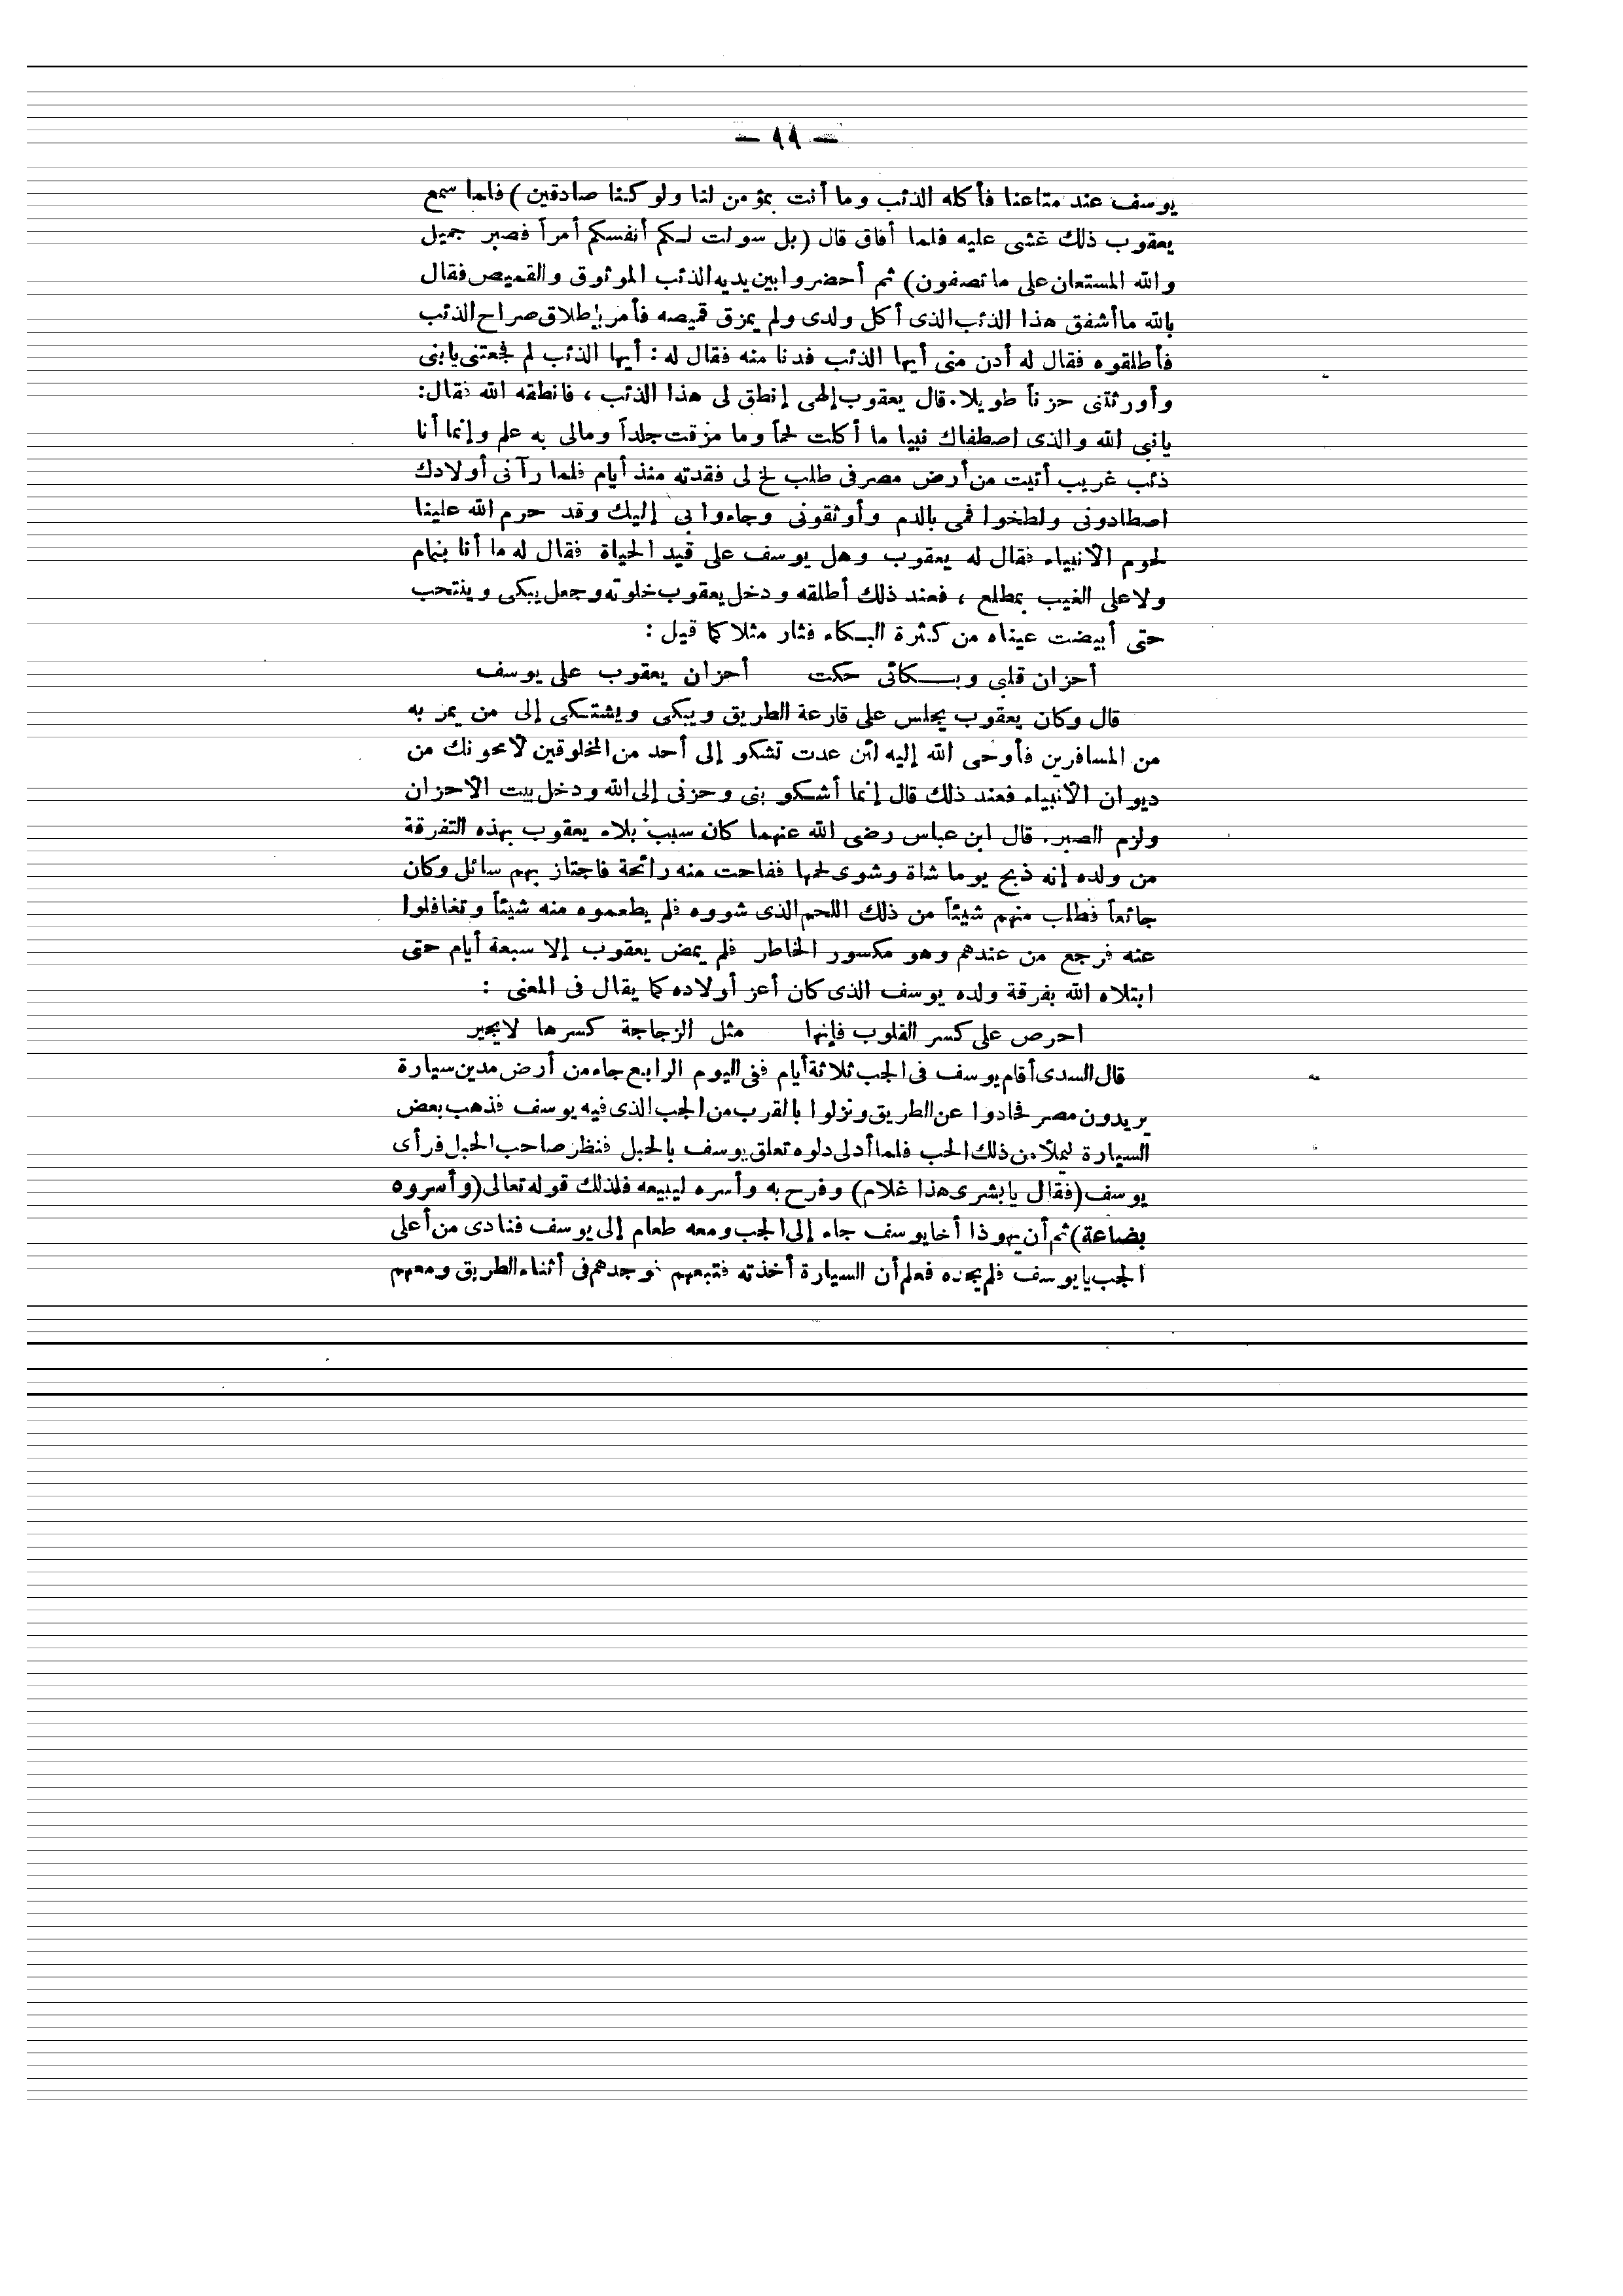 — ٩٩ —
يوسف عند متاعنا فأكله الذئب وما أنت بمؤمن لنا ولو كنا صادقين) فلما سمع
يعقوب ذلك غشى عليه فلما أفاق قال (بل سولت لكم أنفسكم أمراً فصبر جميل
والله المستعان على ما تصفون) ثم أحضروا بين يديه الذئب الموثوق والقميص فقال
بالله ما أشفق هذا الذئب الذى أكل ولدى ولم يمزق قميصه فأمر بإطلاق صراح الذئب
فأطلقوه فقال له أدن منى أيها الذئب فدنا منه فقال له : أيها الذئب لم فجعتنى يا بنى
وأورثتنى حزناً طويلا. قال يعقوب إلهى إنطق لى هذا الذئب ، فانطقه الله فقال:
يا نبى الله والذى اصطفاك نبيا ما أكلت لحماً وما مزقت جلداً ومالى به علم وإنما أنا
ذئب غريب أتيت من أرض مصر فى طلب لخ لى فقدته منذ أيام فلما رآنى أولادك
اصطادونى ولطخوا فمى بالدم وأوثقونى وجاءوا بى إليك وقد حرم الله علينا
لحوم الأنبياء فقال له يعقوب وهل يوسف على قيد الحياة فقال له ما أنا بنمام
ولا على الغيب بمطلع ، فعند ذلك أطلقه ودخل يعقوب خلوته وجعل يبكى وينتحب
حتى أبيضت عيناه من كثرة البكاء فثار مثلا كما قيل :
أحزان قلبى وبكائى حكت أحزان يعقوب على يوسف
قال وكان يعقوب يجلس على قارعة الطريق ويبكى ويشتكى إلى من يمر به
من المسافرين فأوحى الله إليه لئن عدت تشكو إلى أحد من المخلوقين لأمحونك من
ديوان الأنبياء فعند ذلك قال إنما أشكو بثى وحزنى إلى الله ودخل بيت الأحزان
ولزم الصبر. قال ابن عباس رضى الله عنهما كان سبب بلاء يعقوب بهذه التفرقة
من ولده إنه ذبح يوما شاة وشوى لحمها ففاحت منه رائحة فاجتاز بهم سائل وكان
جائعاً فطلب منهم شيئاً من ذلك اللحم الذى شووه فلم يطعموه منه شيئاً وتغافلوا
عنه فرجع من عندهم وهو مكسور الخاطر فلم يمض يعقوب إلا سبعة أيام حتى
ابتلاه الله بفرقة ولده يوسف الذى كان أعز أولاده كما يقال فى المعنى :
احرص على كسر القلوب فإنها مثل الزجاجة كسرها لا يجبر
قال السدى أقام يوسف فى الجب ثلاثة أيام ففى اليوم الرابع جاء من أرض مدين سيارة
يريدون مصر فحادوا عن الطريق ونزلوا بالقرب من الجب الذى فيه يوسف فذهب بعض
السيارة ليملأ من ذلك الجب فلما أدلى دلوه تعلق يوسف بالحبل فنظر صاحب الحبل فرأى
يوسف (فقال يا بشرى هذا غلام) وفرح به وأسره ليبيعه فلذلك قوله تعالى (وأسروه
بضاعة) ثم أن يهوذا أخا يوسف جاء إلى الجب ومعه طعام إلى يوسف فنادى من أعلى
الجب يا يوسف فلم يجده فعلم أن السيارة أخذته فتبعهم فوجدهم فى أثناء الطريق ومعهم